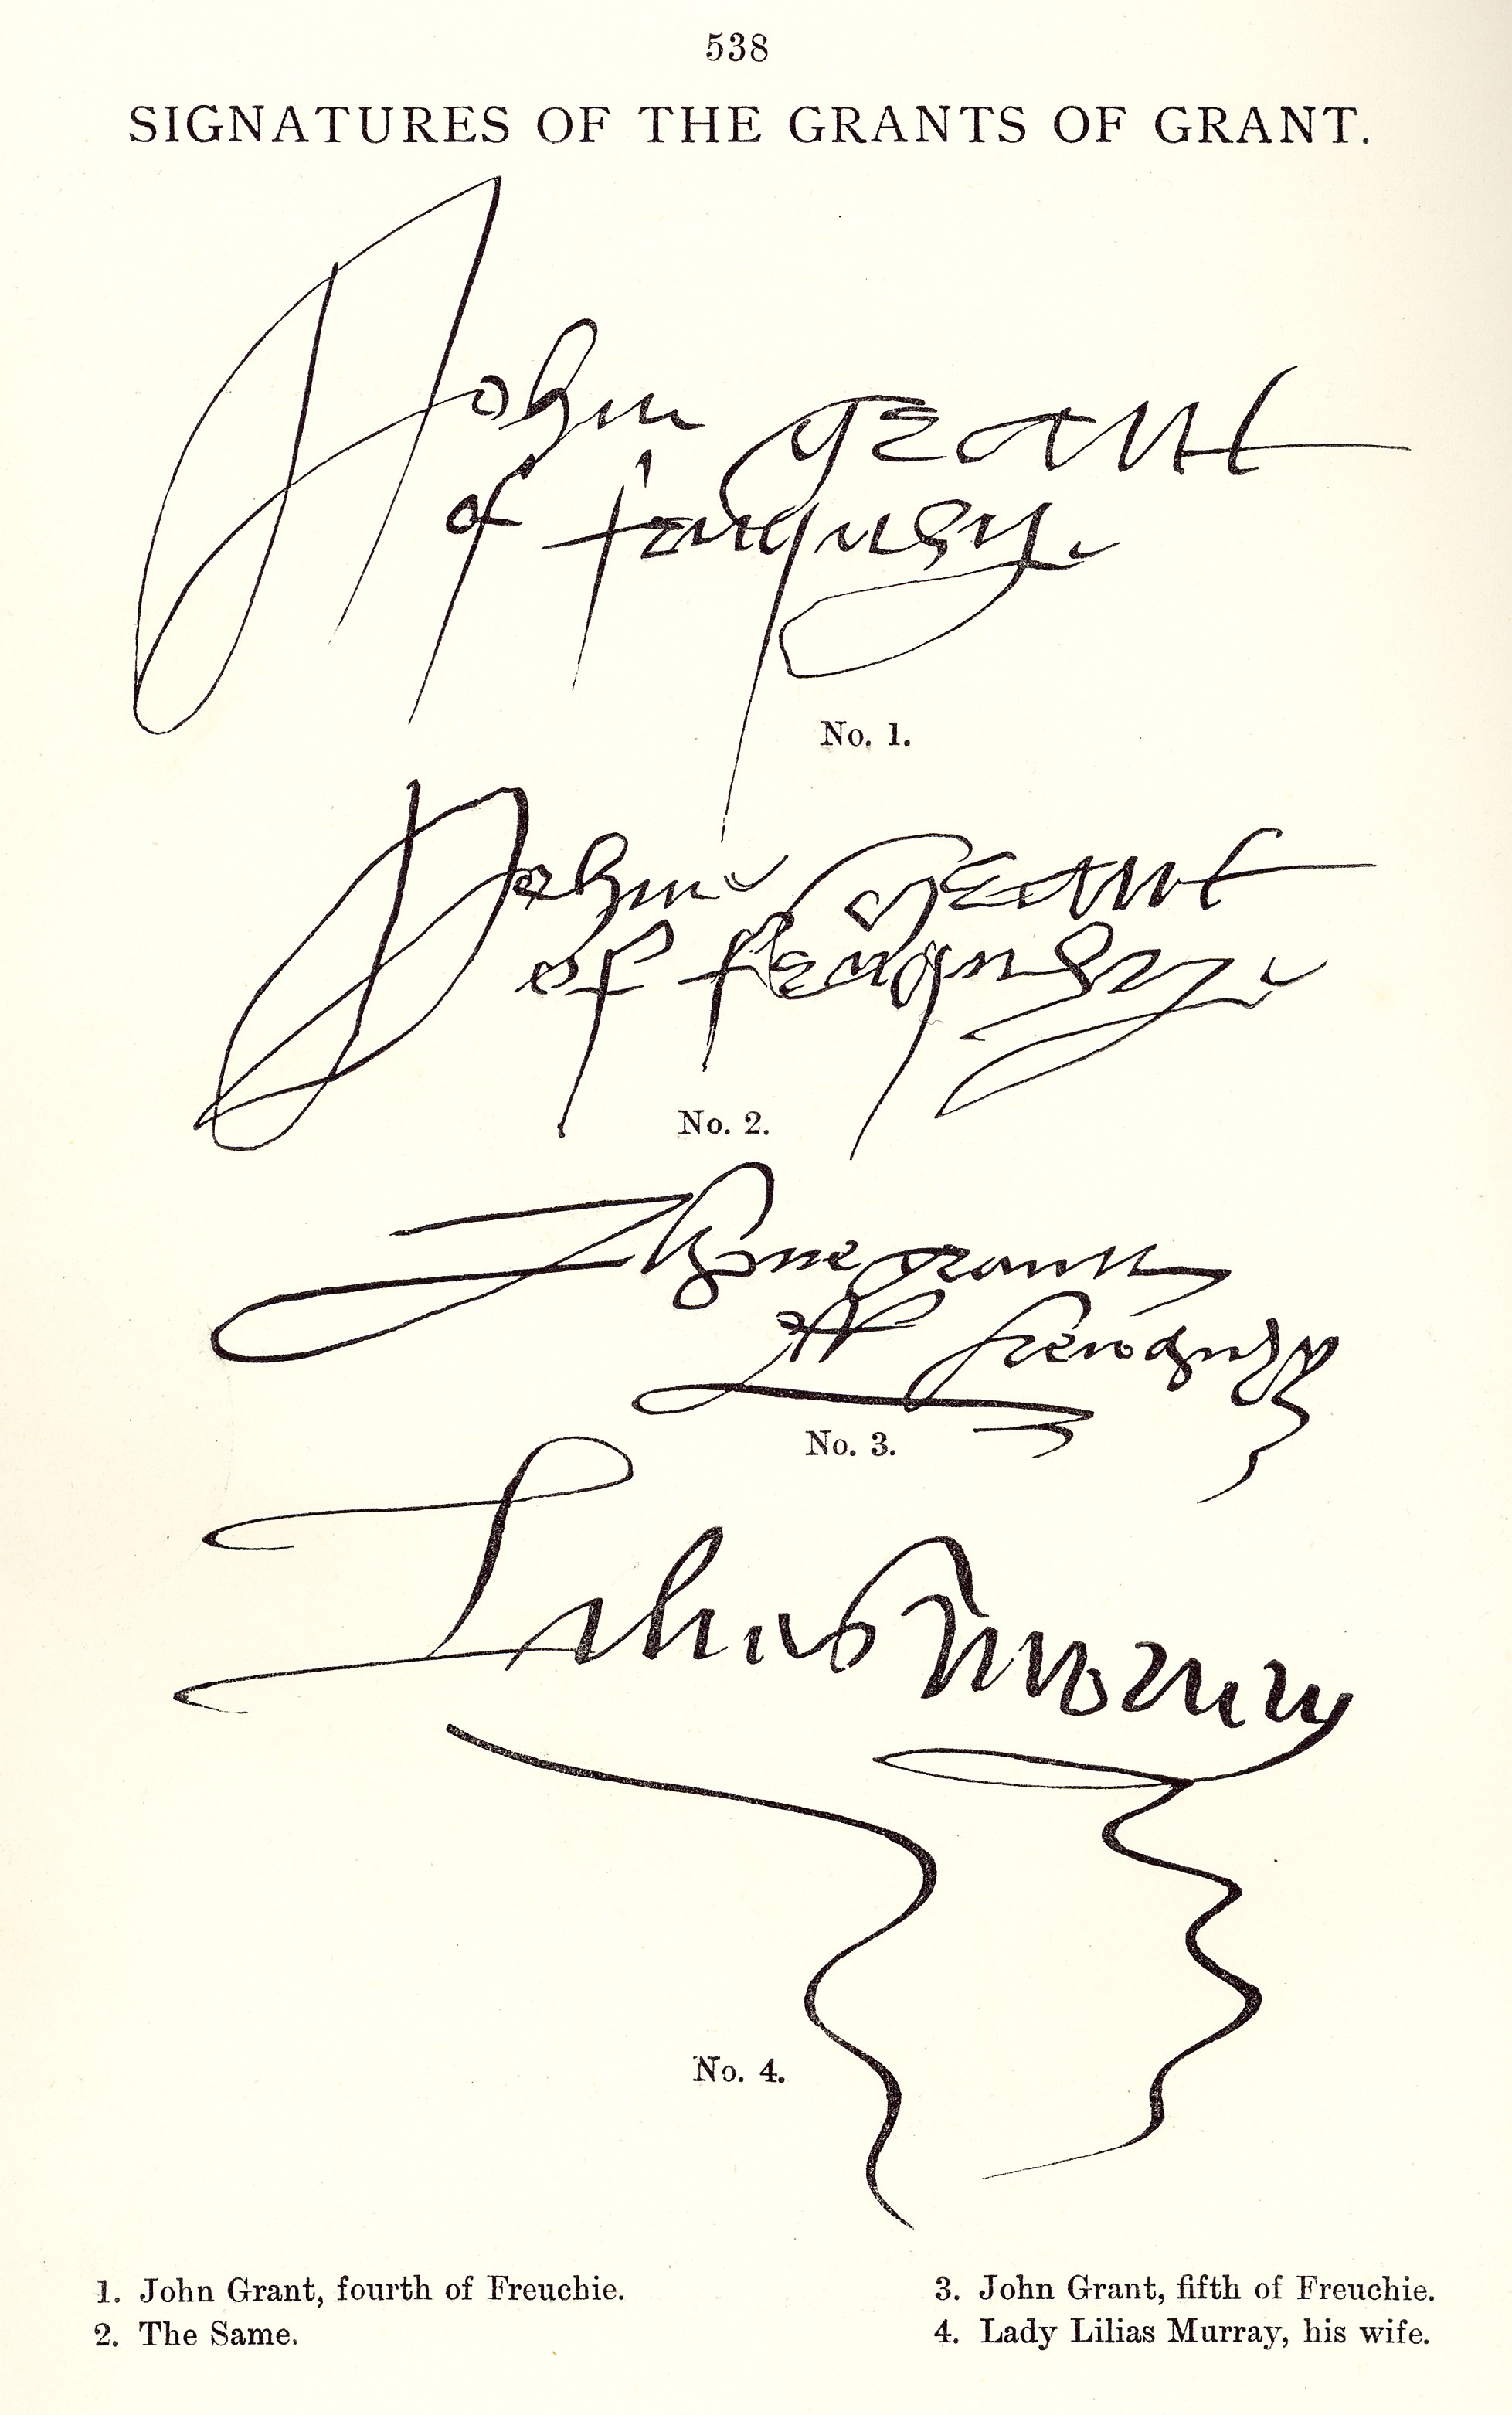 538
SIGNATURES OF THE GRANTS OF GRANT.
John Grant
of
No. 1.
John Grant
of
No. 2.
Jhone Grantt
of
No. 3.
Lilias Murray
No. 4.
1. John Grant, fourth of Freuchie.
2. The Same.
3. John Grant, fifth of Freuchie.
4. Lady Lilias Murray, his wife.